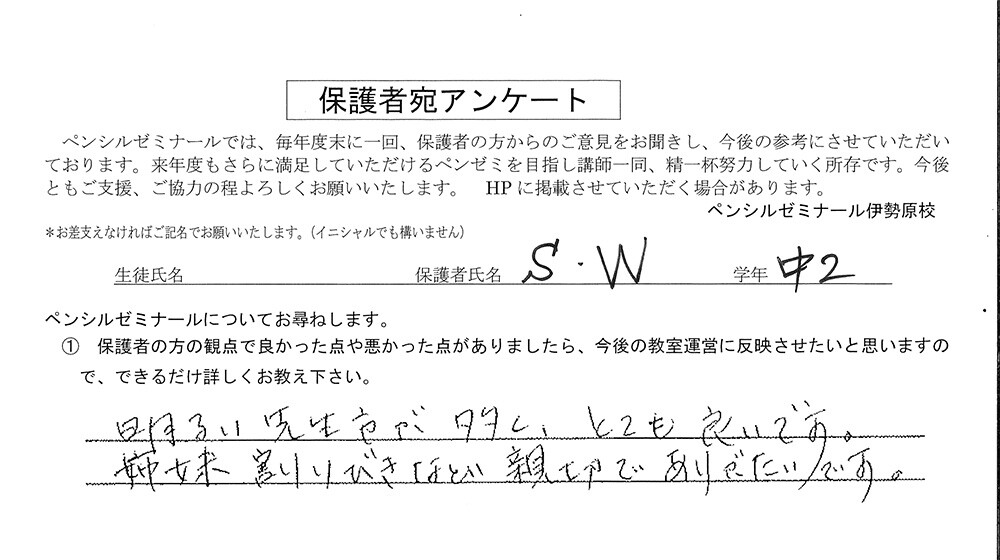 保護者宛アンケート
ペンシルゼミナールでは、毎年度末に一回、保護者の方からのご意見をお聞きし、今後の参考にさせていただい
ております。来年度もさらに満足していただけるペンゼミを目指し講師一同、精一杯努力していく所存です。今後
ともご支援、ご協力の程よろしくお願いいたします。 HPに掲載させていただく場合があります。
ペンシルゼミナール伊勢原校
*お差支えなければご記名でお願いいたします。(イニシャルでも構いません)
生徒氏名 保護者氏名 S・W 学年 中2
ペンシルゼミナールについてお尋ねします。
① 保護者の方の観点で良かった点や悪かった点がありましたら、今後の教室運営に反映させたいと思いますの
で、できるだけ詳しくお教え下さい。
明るい先生方が多く、とても良いです。
姉妹割りびきなど親切でありがたいです。